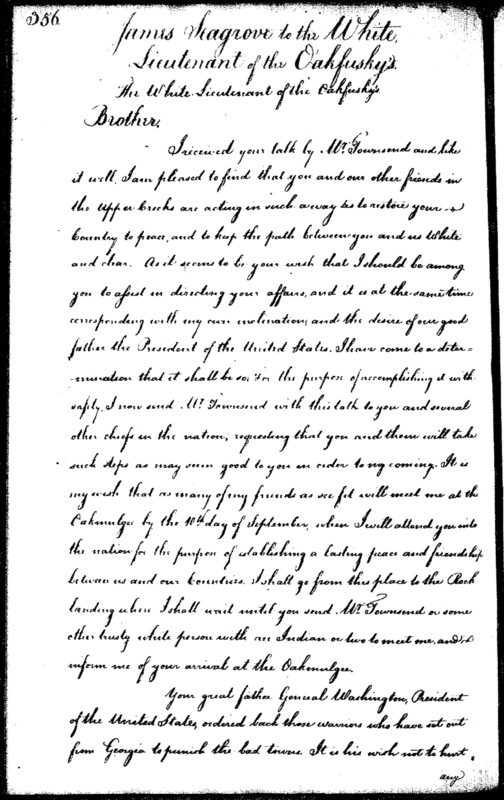 356.
James Seagrove to the White,
Lieutenant of the Oakfusky's.
The White Lieutenant of the Oakfuskys
Brother,
I received your talk by Mr. Townsend and like
it well, I am pleased to find that you and our other friends in
the Upper Creeks are acting in such a way as to restore your
Country to peace, and to keep the path between you and us White
and clear. As it seems to be your wish that I should be among
you to assist in directing your affairs, and it is at the same time
corresponding with my own inclination, and the desire of our good
father the President of the United States. I have come to a deter-
-mination that it shall be so, for the purpose of accomplishing it with
safety, I now send Mr. Townsend with this talk to you and several
other chiefs in the nation, requesting that you and them will take
such steps as may seem good to you in order to my coming. It is
my wish that as many of my friends as see fit will meet me at the
Oakmulgee by the 10th day of September, when I will attend you into
the nation for the purpose of establishing a lasting peace and friendship
between us and our Countries. I shall go from this place to the Rock
landing when I shall wait until you send Mr. Townsend or some
other trusty white person with an Indian or two to meet me, and
inform me of your arrival at the Oakmulgee.
Your great father General Washington, President
of the United States, ordered back those warriors who have set out
from Georgia to punish the bad towns. It is his wish not to hurt
any